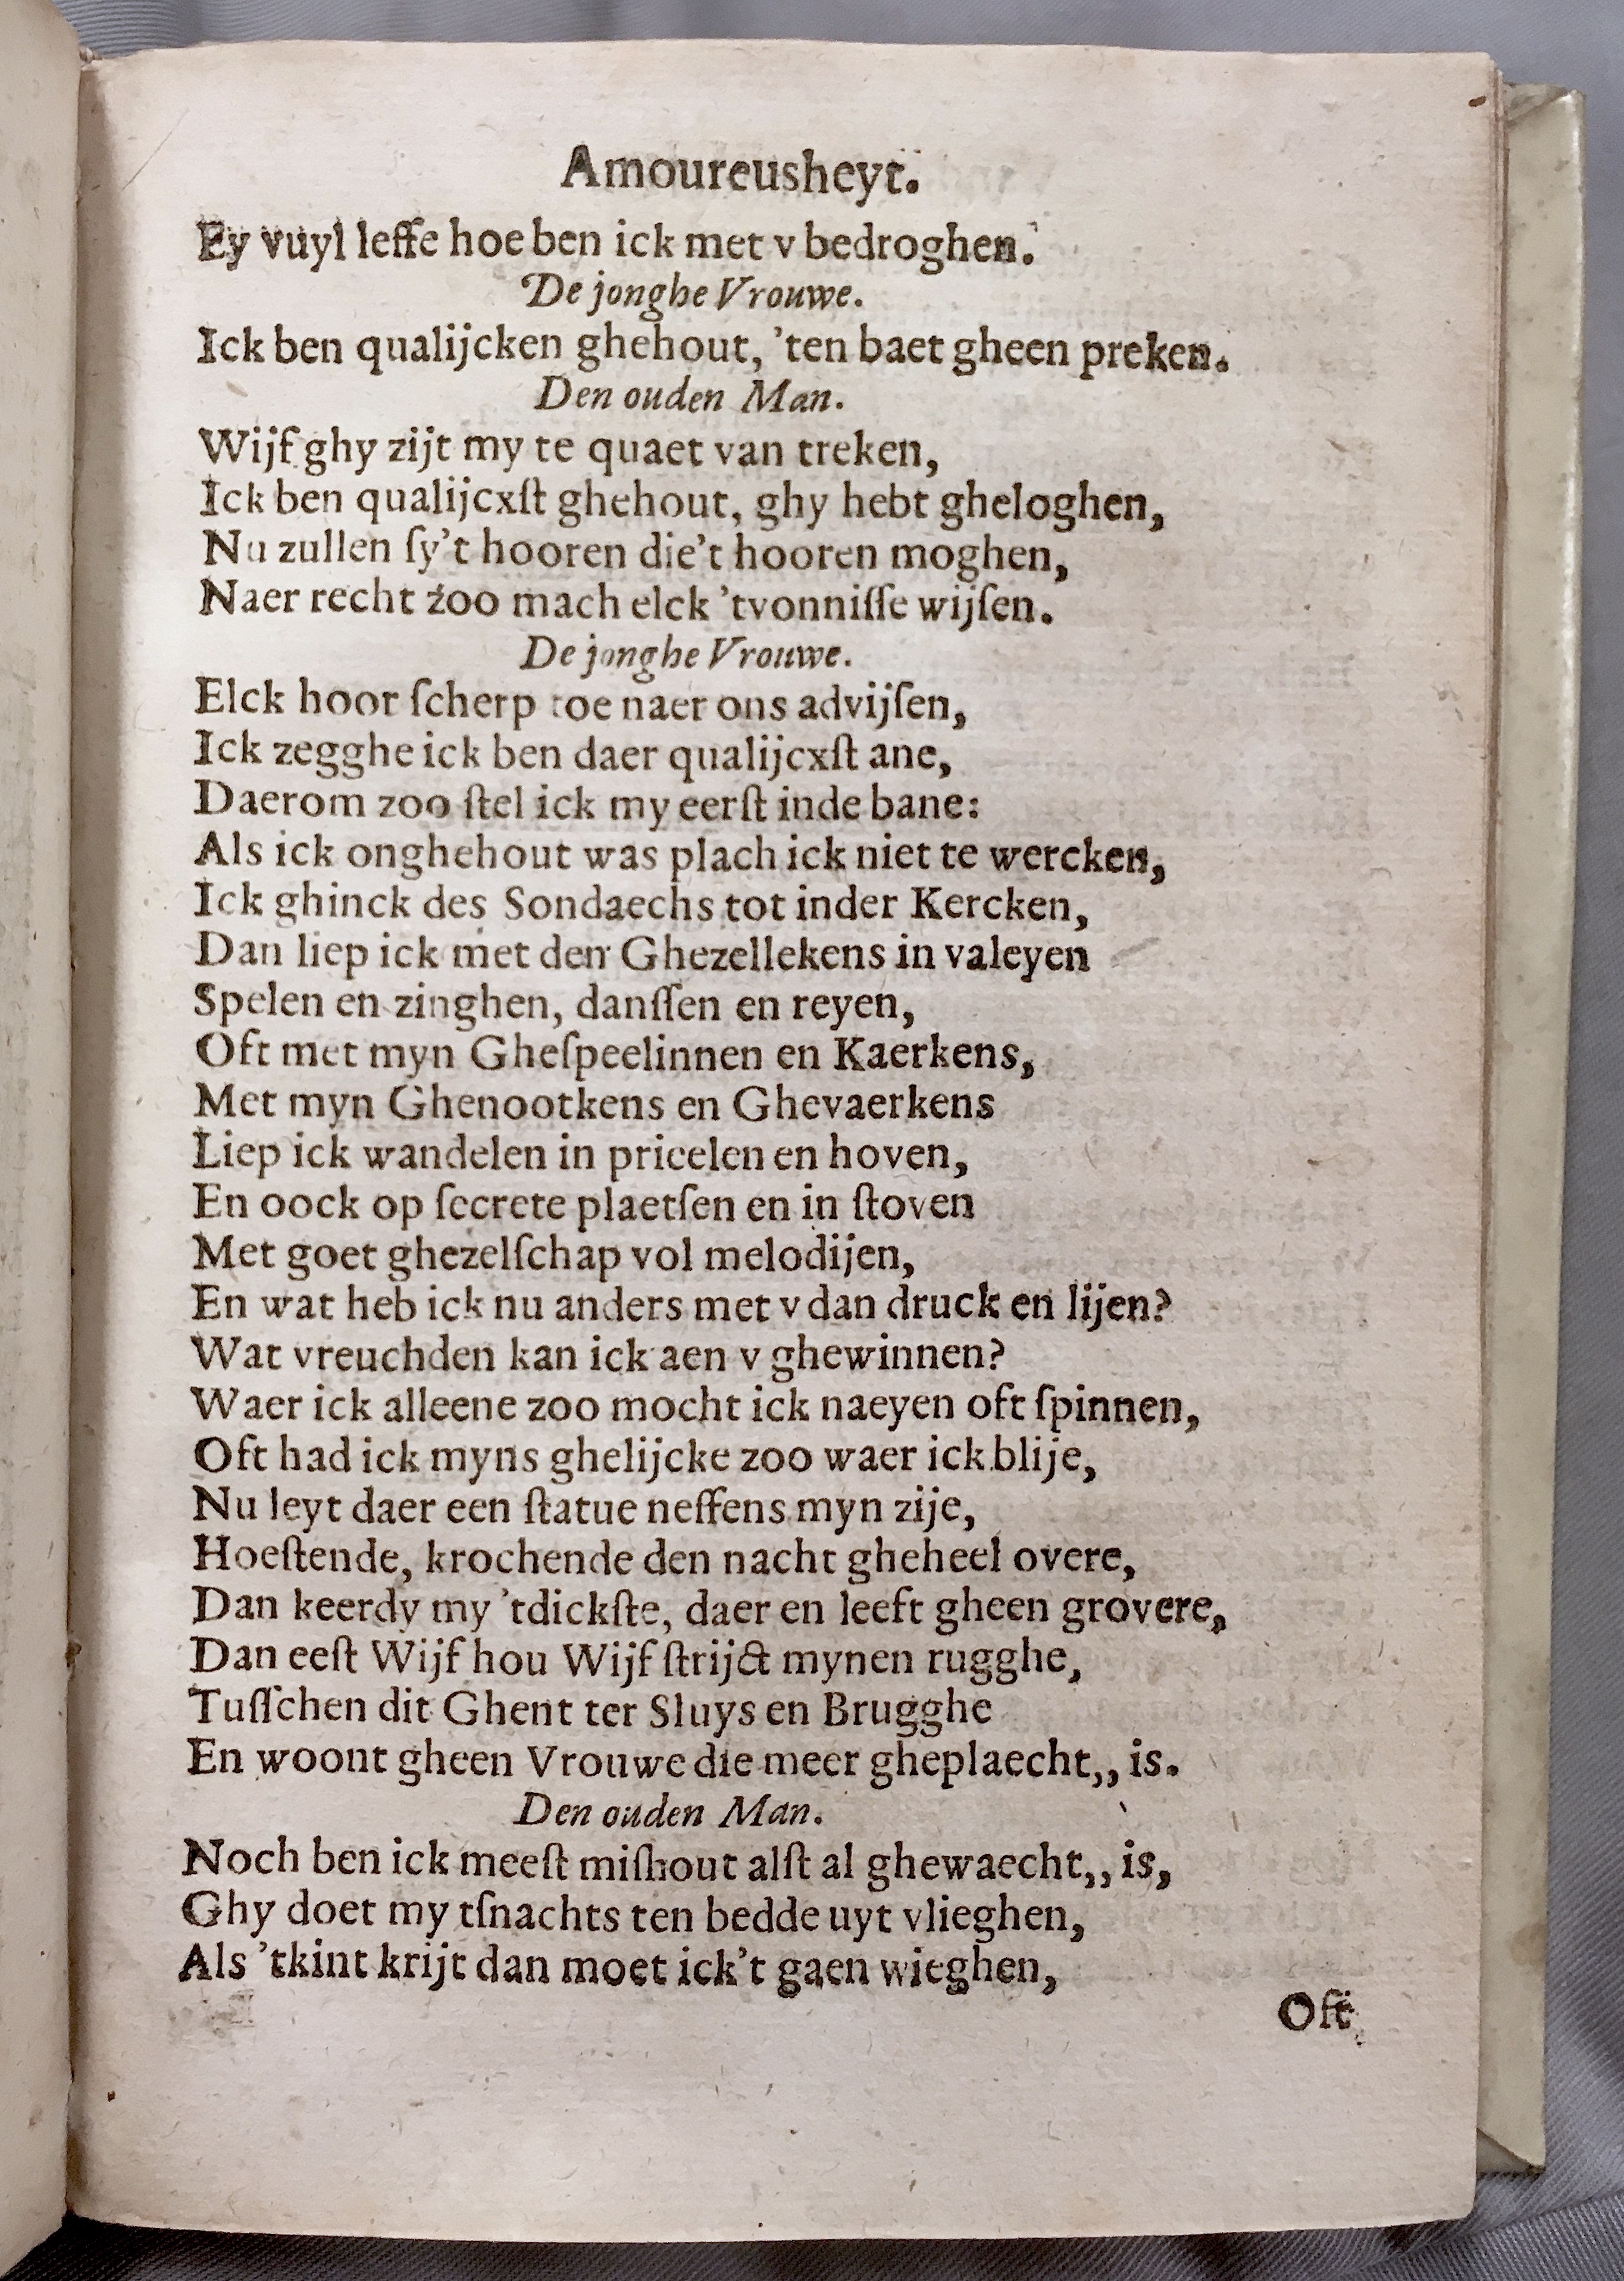 Amoureusheyt.
Ey vuyl leffe hoe ben ick met v bedroghen.
De jonghe Vrouwe.
Ick ben qualijcken ghehout, ’ten baet gheen preken.
Den ouden Man.
Wijf ghy zijt my te quaet van treken,
Ick ben qualijcxſt ghehout, ghy hebt gheloghen,
Nu zullen ſy’t hooren die’t hooren moghen,
Naer recht zoo mach elck ’tvonniſſe wijſen.
De jonghe Vrouwe.
Elck hoor ſcherp toe naer ons advijſen,
Ick zegghe ick ben daer qualijcxſt ane,
Daerom zoo ſtel ick my eerſt inde bane:
Als ick onghehout was plach ick niet te wercken,
Ick ghinck des Sondaechs tot inder Kercken,
Dan liep ick met den Ghezellekens in valeyen
Spelen en zinghen, danſſen en reyen,
Oft met myn Gheſpeelinnen en Kaerkens,
Met myn Ghenootkens en Ghevaerkens
Liep ick wandelen in prieelen en hoven,
En oock op ſecrete plaetſen en in ſtoven
Met goet ghezelſchap vol melodijen,
En wat heb ick nu anders met v dan druck en lijen?
Wat vreuchden kan ick aen v ghewinnen?
Waer ick alleene zoo mocht ick naeyen oft ſpinnen,
Oft had ick myns ghelijcke zoo waer ick blije,
Nu leyt daer een ſtatue neffens myn zije,
Hoeſtende, krochende den nacht gheheel overe,
Dan keerdy my ’tdickſte, daer en leeft gheen grovere,
Dan eeſt Wijf hou Wijf ſtrijct mynen rugghe,
Tuſſchen dit Ghent ter Sluys en Brugghe
En woont gheen Vrouwe die meer gheplaecht,, is.
Den ouden Man.
Noch ben ick meeſt miſhout alſt al ghewaecht,, is,
Ghy doet my tſnachts ten bedde uyt vlieghen,
Als ’tkint krijt dan moet ick’t gaen wieghen,
Oft